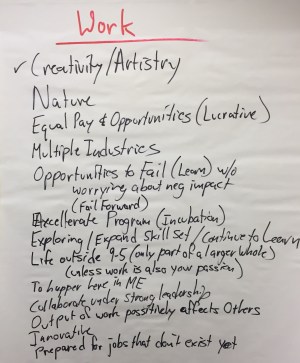 Work
✓ Creativity/Artistry
Nature
Equal Pay & Opportunities (Lucrative)
Multiple Industries
Opportunities to Fail (Learn) w/o
worrying about neg impact
(Fail Forward)
Excellerate Program (Incubation)
Exploring/Expand Skill Set /Continue to Learn
Life outside 9-5 (only part of a larger whole)
(unless work is also your passion)
To happen here in ME
Collaborate under strong leadership
Output of work possitively affects Others
Innovative
Prepared for jobs that don't exist yet